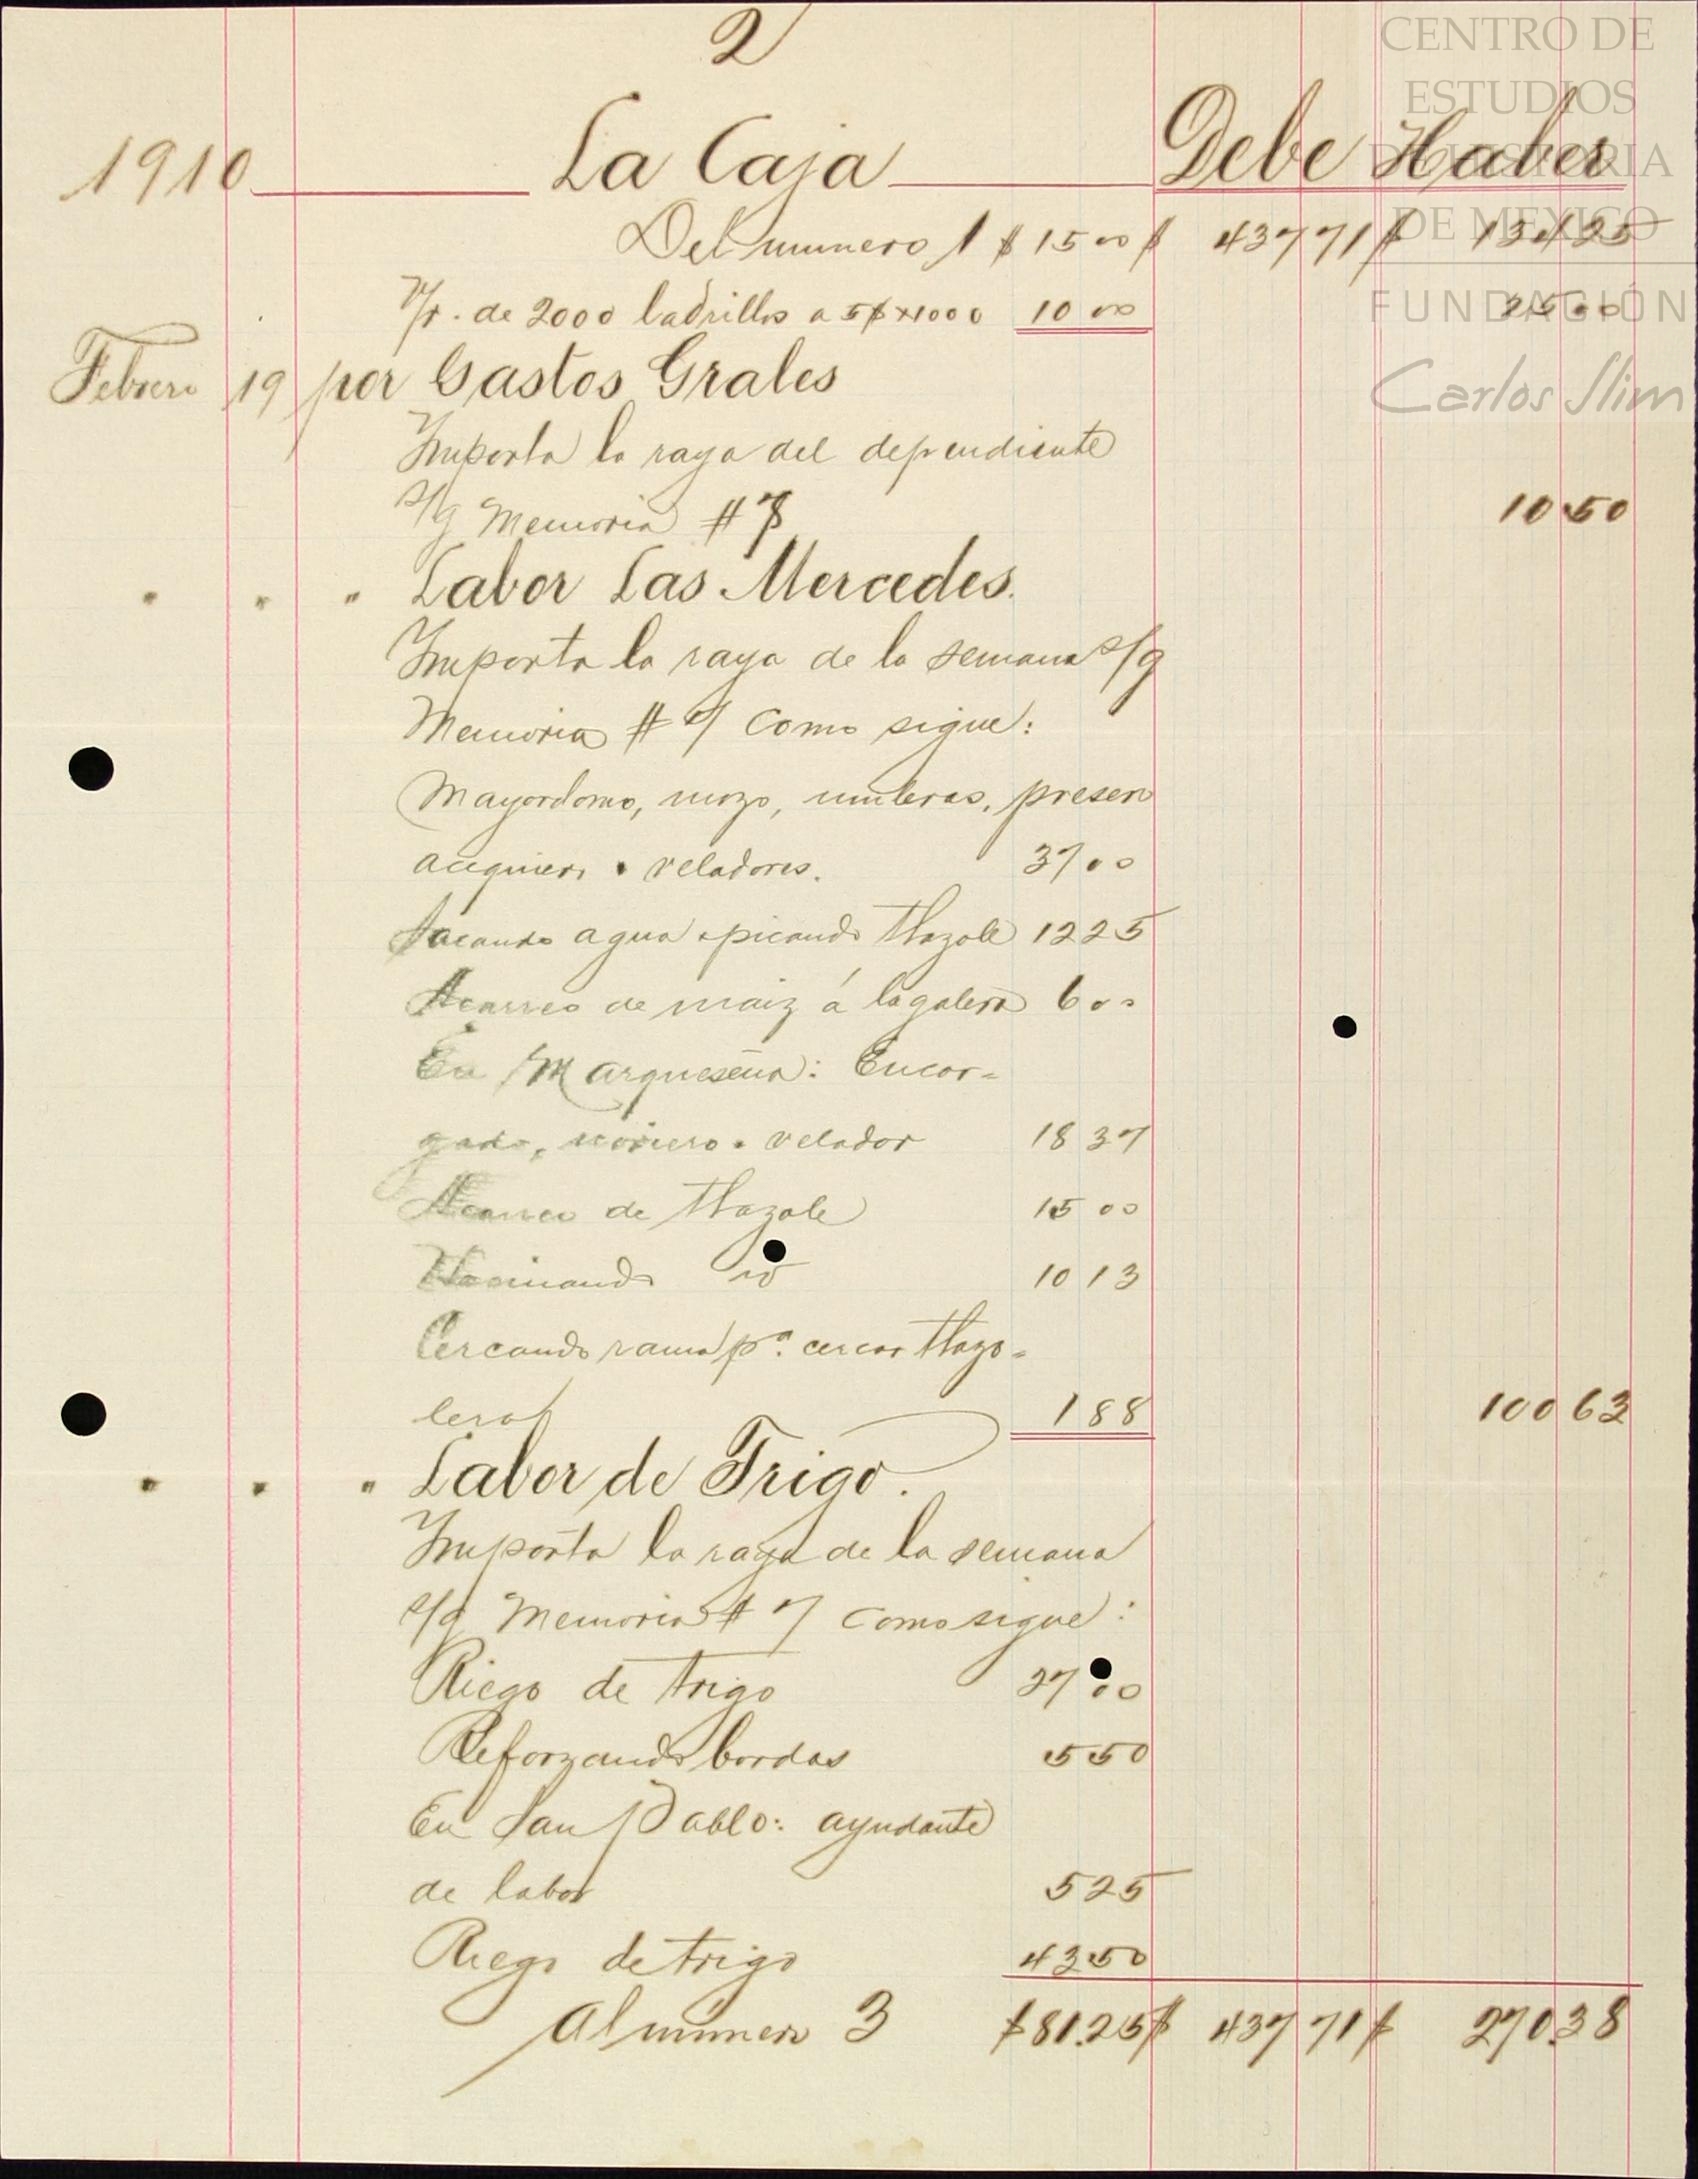 2
CENTRO DE
ESTUDIOS
DE HISTORIA
DE MEXICO
FUNDACIÓN
Carlos Slim
1910 La Caja Debe Haber
Del numero 1 $ 15 00 $ 437 71 $ 134 25
V/r. de 2000 ladrillos a 5$ x 1000 10 00 25 00
Febrero 19 por Gastos Grales
Importa la raya del dependiente
s/g Memoria # 7 10 50
" " " Labor Las Mercedes.
Importa la raya de la semana s/g
Memoria # 7 como sigue:
Mayordomo, mozo, muleros, presero
acequiero veladores. 37 00
Sacando agua picando tlazole 12 25
Acarreo de maiz á la galera 6 00
En Marqueseña: Encar-
gado, noriero velador 18 37
Acarreo de tlazole 15 00
Hacinando id 10 13
Cercando rama pa. cercar tlazo-
lera 1 88 100 63
" " " Labor de Trigo.
Importa la raya de la semana
s/g Memoria # 7 como sigue:
Riego de trigo 27 00
Reforzando bordos 5 50
En San Pablo: ayudante
de labor 5 25
Riego de trigo 43 50
Al número 3 $81.25 $ 437 71 $ 270.38